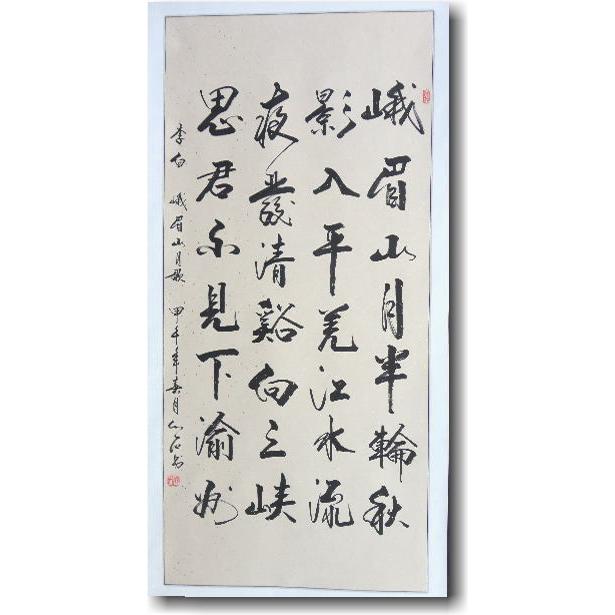 峨眉山月半輪秋
影入平羌江水流
夜發清谿向三峽
思君不見下渝州
李白 峨眉山月歌 甲午年春月